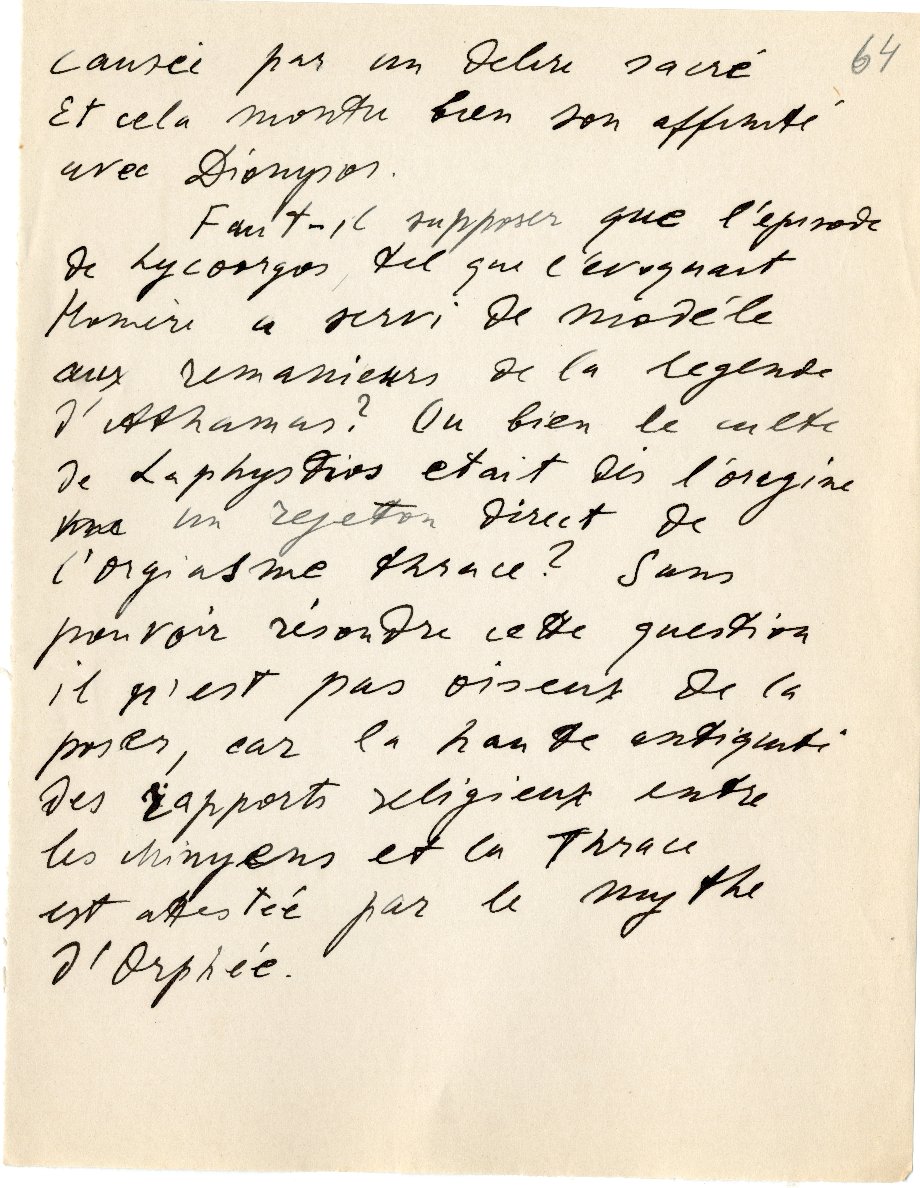 64
causée par un delire sacré
Et cela montre bien son affinité
avec Dionysos.
Faut-il supposer que l'épisode
de Lycoorgos, tel que l'évoquait
Homère a servi de modèle
aux remanieurs de la legende
d'Athamas? Ou bien le culte
de Laphystios etait dès l'origine
un rejeton direct de
l'orgiasme thrace? Sans
pouvoir résoudre cette question
il n'est pas oiseux de la
poser, car la haute antiquité
des rapports religieux entre
les Minyens et la Thrace
est attestée par le mythe
d'Orphée.